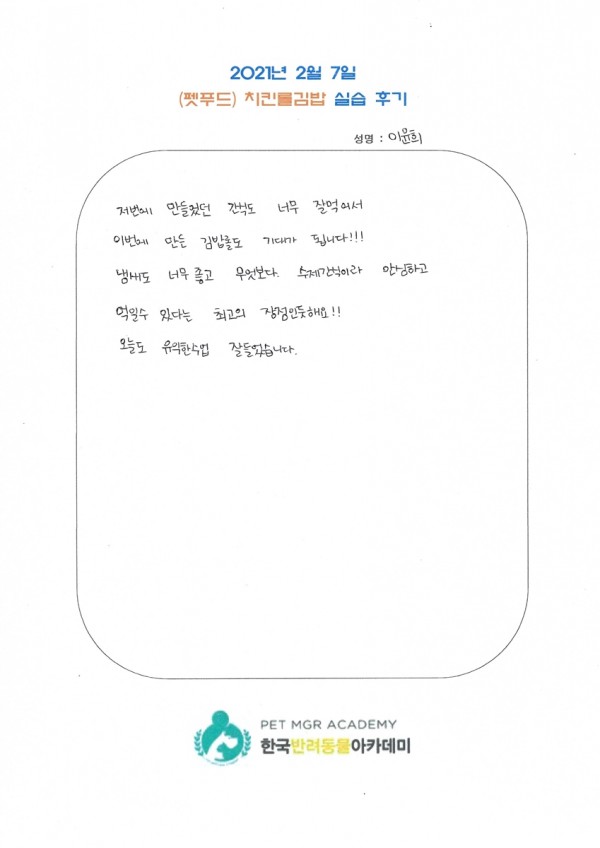 2021년 2월 7일
(펫푸드) 치킨롤김밥 실습 후기
성명 : 이윤희
저번에 만들었던 간식도 너무 잘먹어서
이번에 만든 김밥롤도 기대가 됩니다!!!
냄새도 너무 좋고 무엇보다. 수제간식이라 안심하고
먹일수 있다는 최고의 장점인듯해요!!
오늘도 유익한수업 잘들었습니다.
PET MGR ACADEMY
한국반려동물아카데미